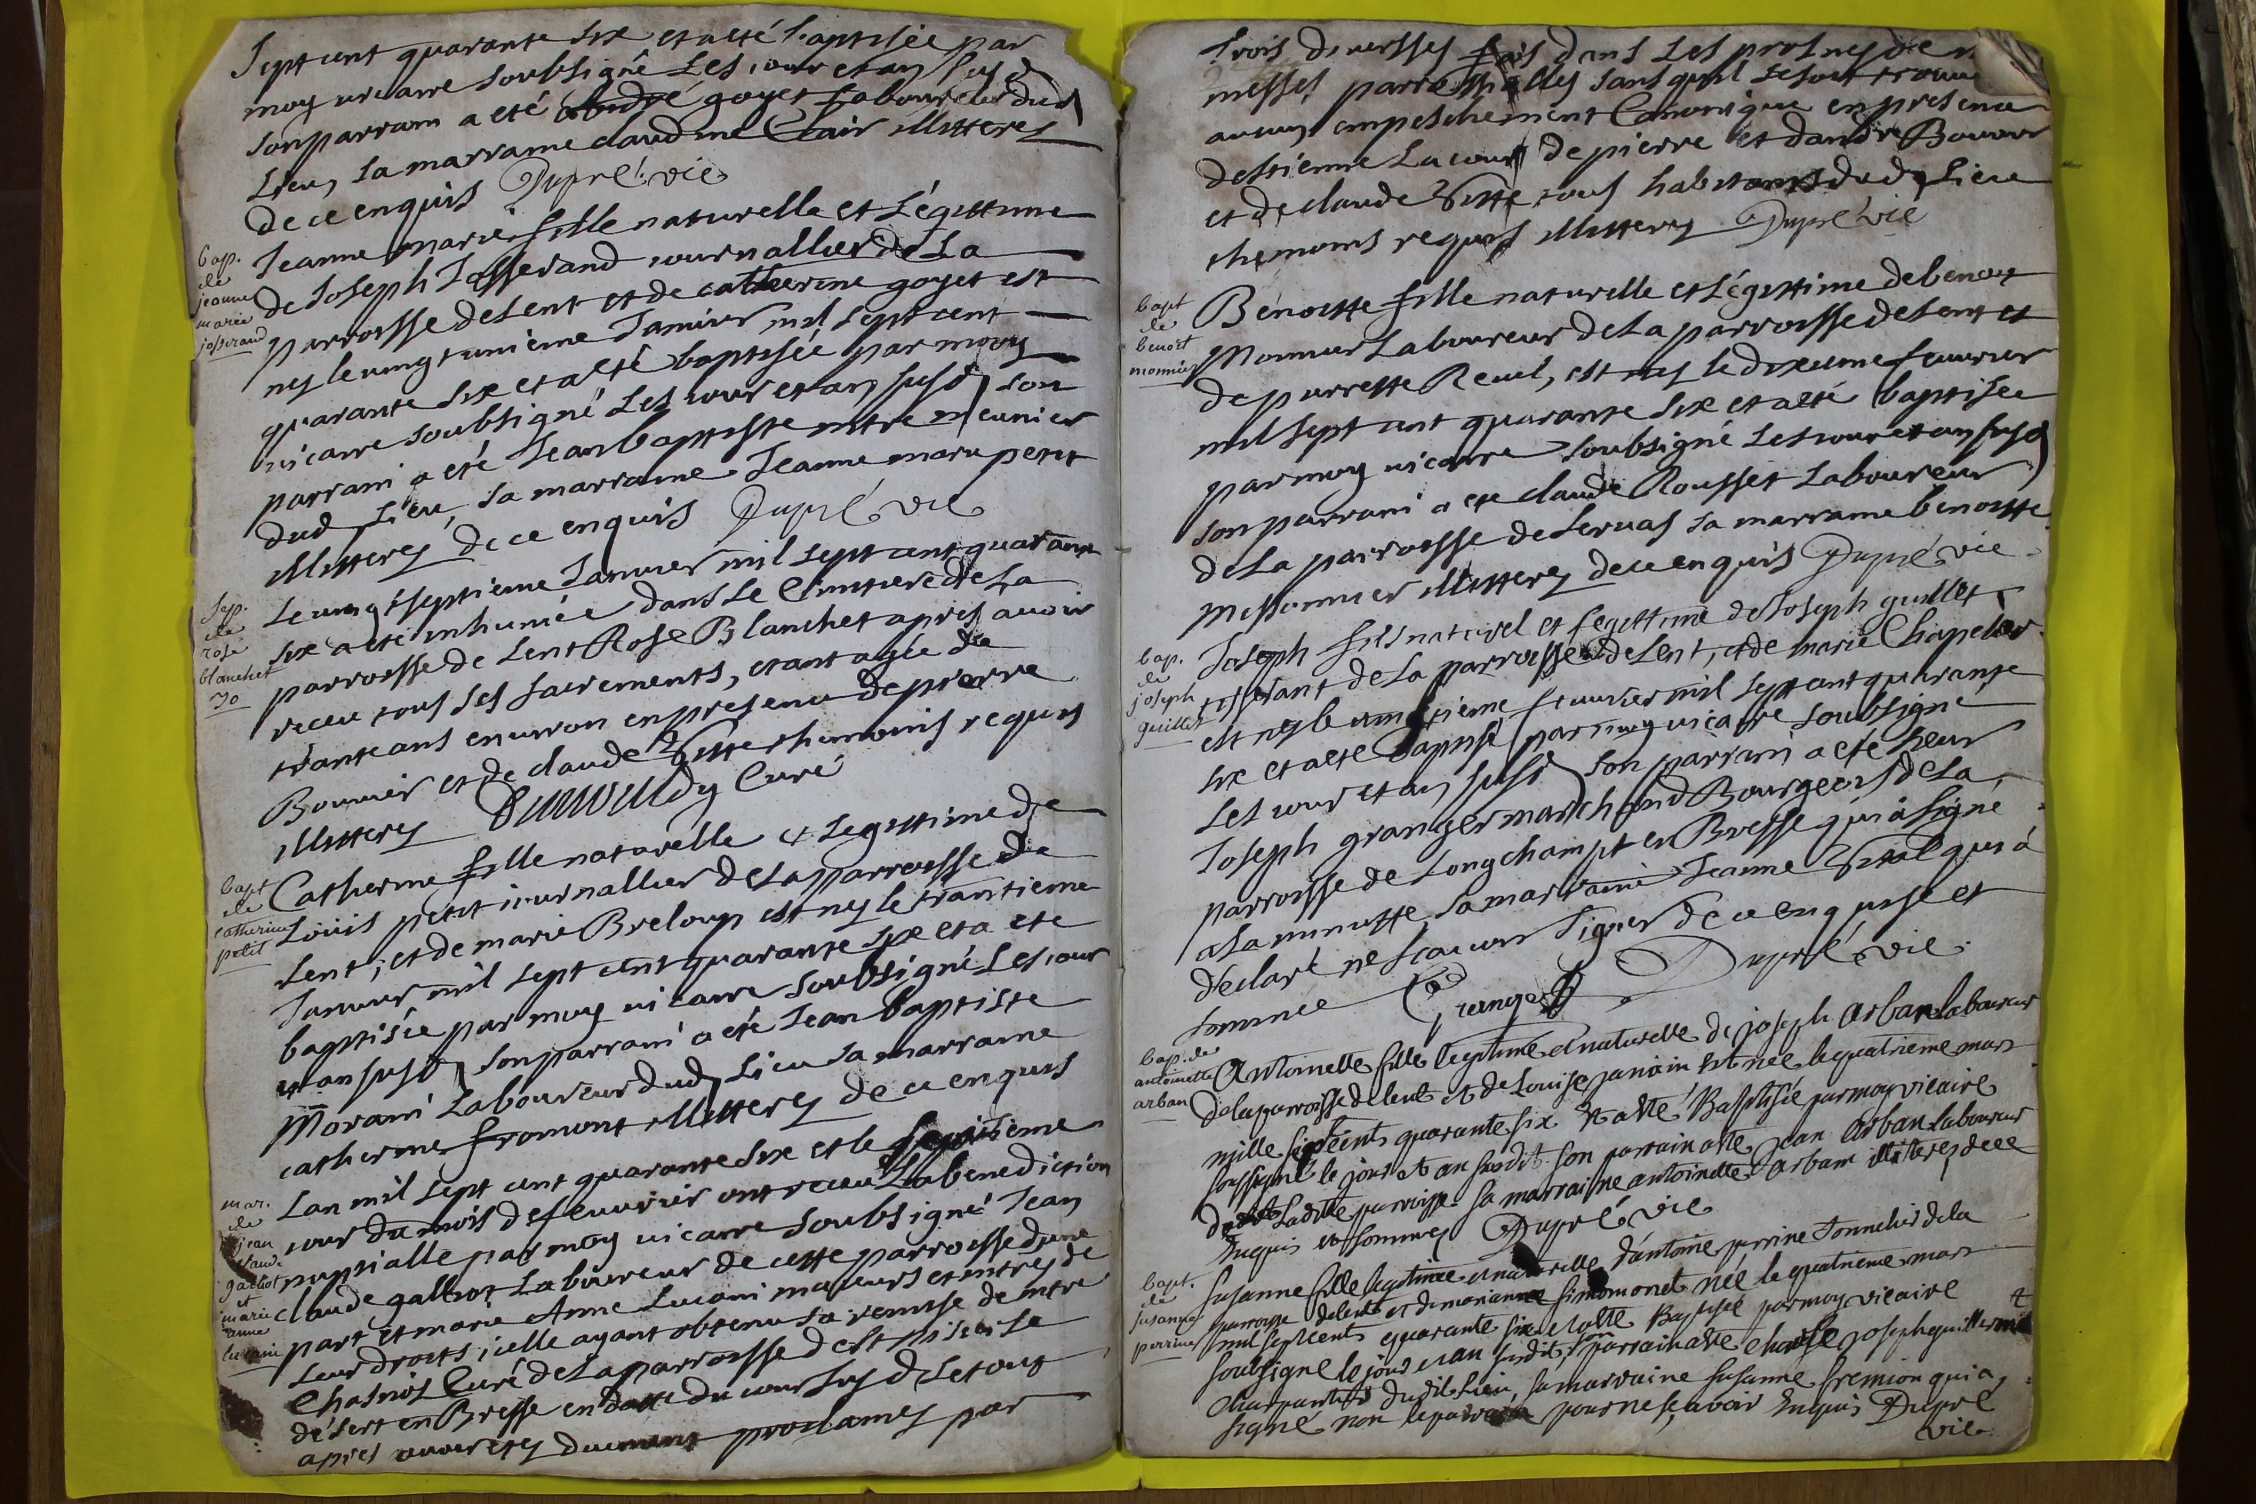 Sept cent quarante six et a eté baptisée par
moy vicaire soubsigné les jour et an susd
son parrain a eté André goyet Laboureur dud
Lieu, sa marraine claudine Clair illitterés
de ce enquis Dupré vic
bap.
de
jeanne
marie
josserand
Jeanne marie fille naturelle et Légittime
de Joseph Josserand journallier de La
parroisse de Lent et de catherine goyet est
née le vingt unieme Janvier mil sept cent
quarante six et a eté baptisée par moy
vicaire soubsigné Les jour et an susd son
parrain a eté Jean baptiste
dud Lieu, sa marraine Jeanne marie petit
illitterés de ce enquis Dupré vic
sep.
de
rose
blanchet
30
Le vingt septieme Janvier mil sept cent quarante
six a eté inhumée dans Le Cimitiere de La
parroisse de Lent Rose Blanchet apres avoir
receu tous ses sacrements, etant agée de
trante ans environ en presence de pierre
Bouvier et de claude thémoins requis
illitterés Curé
bapt
de
catherine
petit
Catherine fille naturelle et Legittime de
Loüis petit journallier de La parroisse de
Lent, et de marie Breloup est née le trantieme
Janvier mil sept cent quarante six et a eté
baptisée par moy vicaire soubsigné Les jour
et an susd son parrain a eté Jean baptiste
Morain Laboureur dud Lieu sa marraine
catherine fromont illitterés de ce enquis
mar.
de
jean
claude
galliot
et
marie
anne
lucain
Lan mil sept cent quarante six et le septieme
jour du mois de feuvrier ont receu La benediction
nuptialle par moy vicaire soubsigné Jean
claude galliot Laboureur de cette parroisse d'une
part et marie Anne Lucain majeurs et mtres de
Leur droits, icelle ayant obtenu sa remise de mtre
Chasnois Curé de La parroisse de st
désert en Bresse en datte du jour susd Le tout
apres avoir etés duement proclamés par
Trois diversses fois dans Les prosnes de
messes parroissialles sans qu'il se soit trouvé
aucun empeschement Canonique en presence
destienne Lacour de pierre et dandré Bouvier
et de claude tous habitants dud Lieu
themoins requis illitterés Dupré vic
bapt
de
benoit
monnier
Bénoitte fille naturelle et Légittime de benoit
Monnier Laboureur de La parroisse de Lent et
de pierrette Reveil, est née le dixieme feuvrier
mil sept cent quarante six et a eté baptisée
par moy vicaire soubsigné Les jour et an susd
son parrain a eté claude Rousset Laboureur
de La parroisse de Servas sa marraine benoitte
Messonnier illitterés de ce enquis Dupré vic
bap.
de
joseph
guillet
Joseph fils naturel et Legittime de Joseph guillet
tisserant de La parroisse de Lent, et de marie Chapelier
est né le feuvrier mil sept cent quarante
six et a eté baptisé par moy vicaire soubsigné
Les jour et an susd son parrain a eté sieur
Joseph granger marchand Bourgeois de La
parroisse de Longchampt en Bresse qui a signé
a La minutte, sa marraine Jeanne qui a
déclaré ne scavoir signer de ce enquise et
sommée Granger Dupré vic.
bap. de
antoinette
arban
Antoinette fille legitime et naturelle de joseph arban laboureur
de la parroisse de lent et de Louise janoin est née le quatrieme mars
mille septcents quarante six et a été Baptisée par moy vicaire
soussigné le jour et an susdit son parrain a eté Jean arban laboureur
de ladite parroisse sa marraine antoinette arban illiteres de ce
Enquis et sommes Dupré vic
bapt.
de
susanne
perrine
Susanne fille legitime et naturelle d'antoine perrine Tonnelier de la
parroisse de lent et de marianne simomonet née le quatrieme mars
mil septcents quarante six et a eté Baptisée par moy vicaire
soubsigné le jour et an susdit, son parrain a eté joseph
charpentier dudit Lieu, sa marraine susanne fremion qui a
signé non le parrain pour ne sçavoir Enquis Dupré
vic.